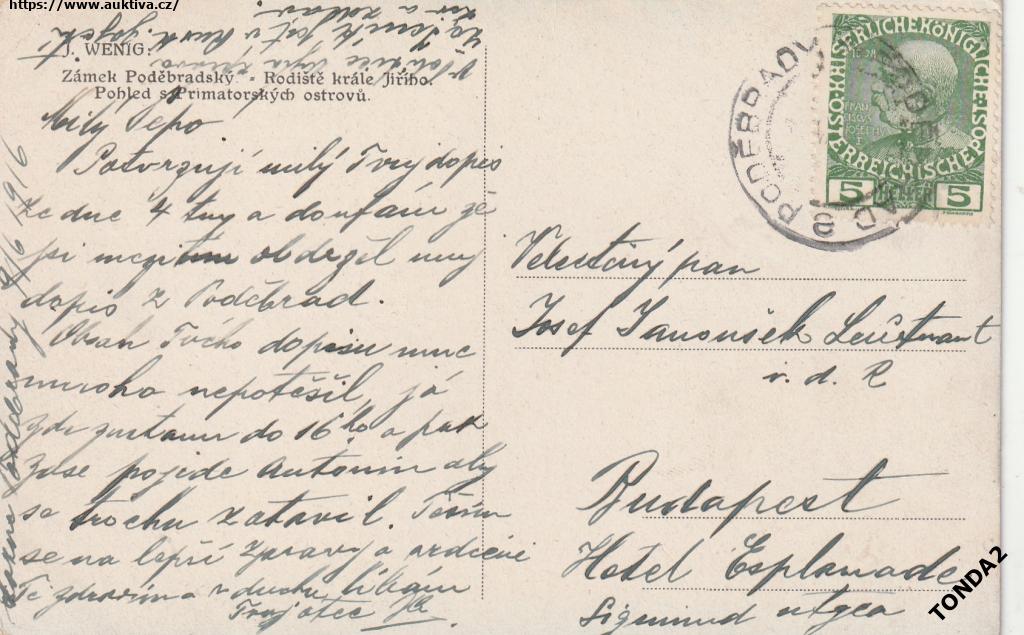 https://www.auktiva.cz/
J. WENIG:
Zámek Poděbradský. - Rodiště krále Jiřího.
Pohled s Primatorských ostrovů.
Milý Pepo
Potvrzuji milý Tvůj dopis
ze dne 4 tny a doufám že
jsi mezitím obdržel můj
dopis z Poděbrad.
Obsah Tvého dopisu mne
mnoho nepotěšil, já
zde zustanu do 16ho a pak
zase pojede Antonín aby
se trochu zotavil. Těším
se na lepší zpravy a srdečně
Tě zdravím a v duchu líbám
Tvuj otec
Poděbrady 9/6 1916
PODĚBRADY
KAISERLICHE KÖNIGLICHE ÖSTERREICHISCHE POST
5 HELLER 5
Velectěný pan
Josef Janoušek Leutnant
i. d. R
Budapest
Hotel Esplanade
Sigmund utcza
TONDA2